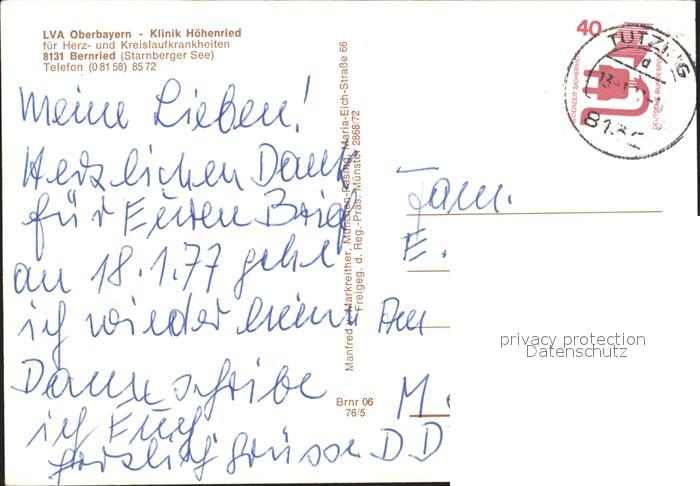 LVA Oberbayern - Klinik Höhenried
für Herz- und Kreislaufkrankheiten
8131 Bernried (Starnberger See)
Telefon (0 81 58) 85 72
Meine Lieben!
Herzlichen Dank
für Euren Brief
an 18.1.77 gehe
ich wieder heim
Dann schreibe
ich Euch
herzlich grüsse D D
Manfred H. Markreither, München-Pasing, Maria-Eich-Straße 66
Freigeg. d. Reg.-Präs. Münster 2868/72
Brnr 06
76/5
40
JEDERZEIT SICHERHEIT
DEUTSCHE BUNDESPOST
TUTZING
d
Fam.
E.
An
M
privacy protection
Datenschutz